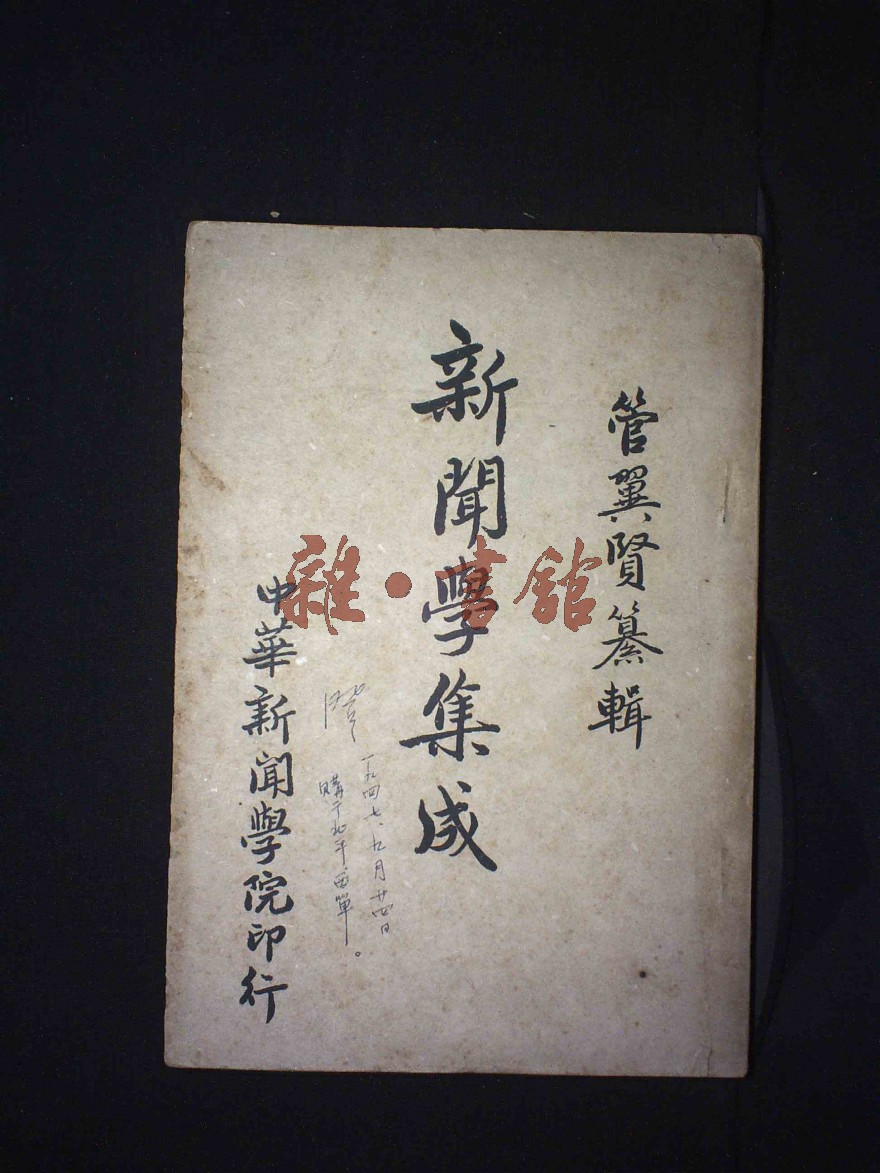 管翼賢纂輯
新聞學集成
一九四七、九月廿四日
購于北平西單。
中華新聞學院印行
雜·書館